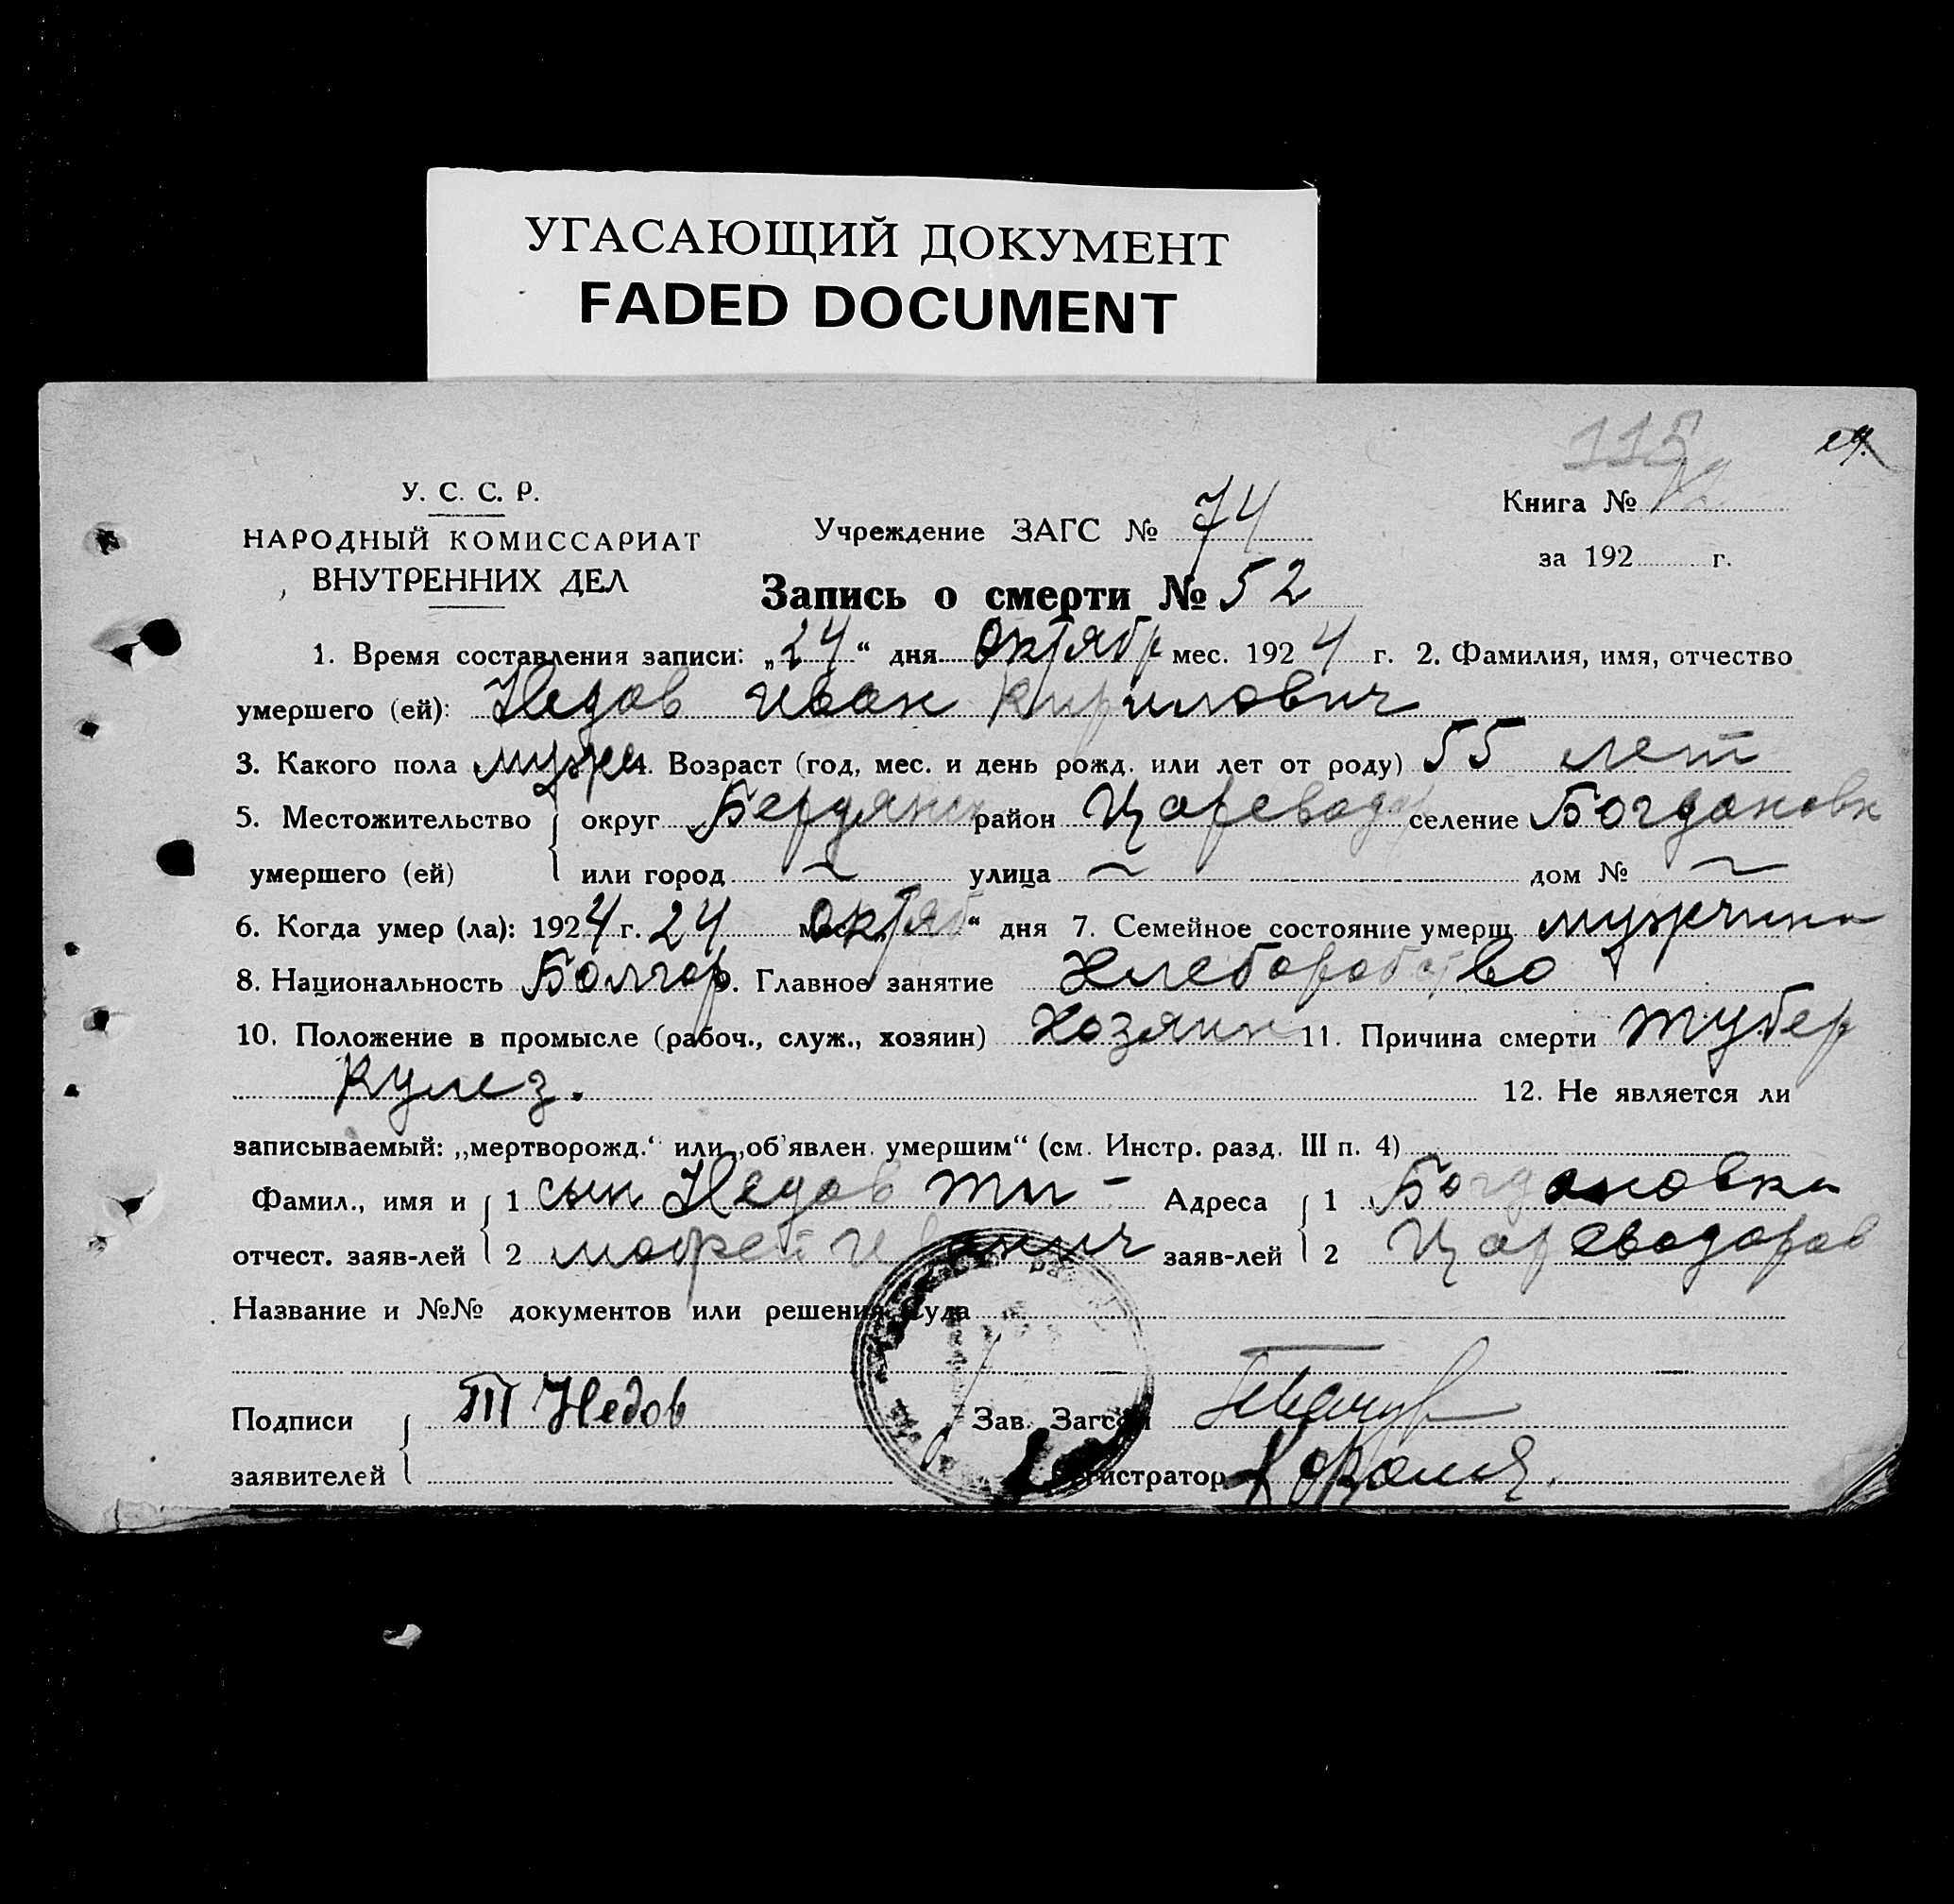 УГАСАЮЩИЙ ДОКУМЕНТ
FADED DOCUMENT
115
29.
У. С. С. Р.
НАРОДНЫЙ КОМИССАРИАТ
ВНУТРЕННИХ ДЕЛ
Учреждение ЗАГС № 74
Книга №
за 192 г.
Запись о смерти № 52
1. Время составления записи: „24“ дня Октябр мес. 1924 г. 2. Фамилия, имя, отчество
умершего (ей): Недов Иван Кирилович
3. Какого пола мужск 4. Возраст (год, мес. и день рожд. или лет от роду) 55 лет
5. Местожительство округ Бердянск район Цареводар селение Богдановк
умершего (ей) или город ~ улица ~ дом № ~
6. Когда умер (ла): 1924 г. 24 мес. Октяб “ дня 7. Семейное состояние умерш. мужчина
8. Национальность Болгар 9. Главное занятие Хлеборобство
10. Положение в промысле (рабоч., служ., хозяин) Хозяин 11. Причина смерти тубер
кулез. 12. Не является ли
записываемый: „мертворожд.“ или „об'явлен. умершим“ (см. Инстр. разд. III п. 4)
Фамил., имя и 1 сын Недов ти- Адреса 1 Богдановка
отчест. заяв-лей 2 мофей Иванич заяв-лей 2 Цареводаров
Название и №№ документов или решения Суда
Подписи Т Недов Зав. Загсом
заявителей Регистратор